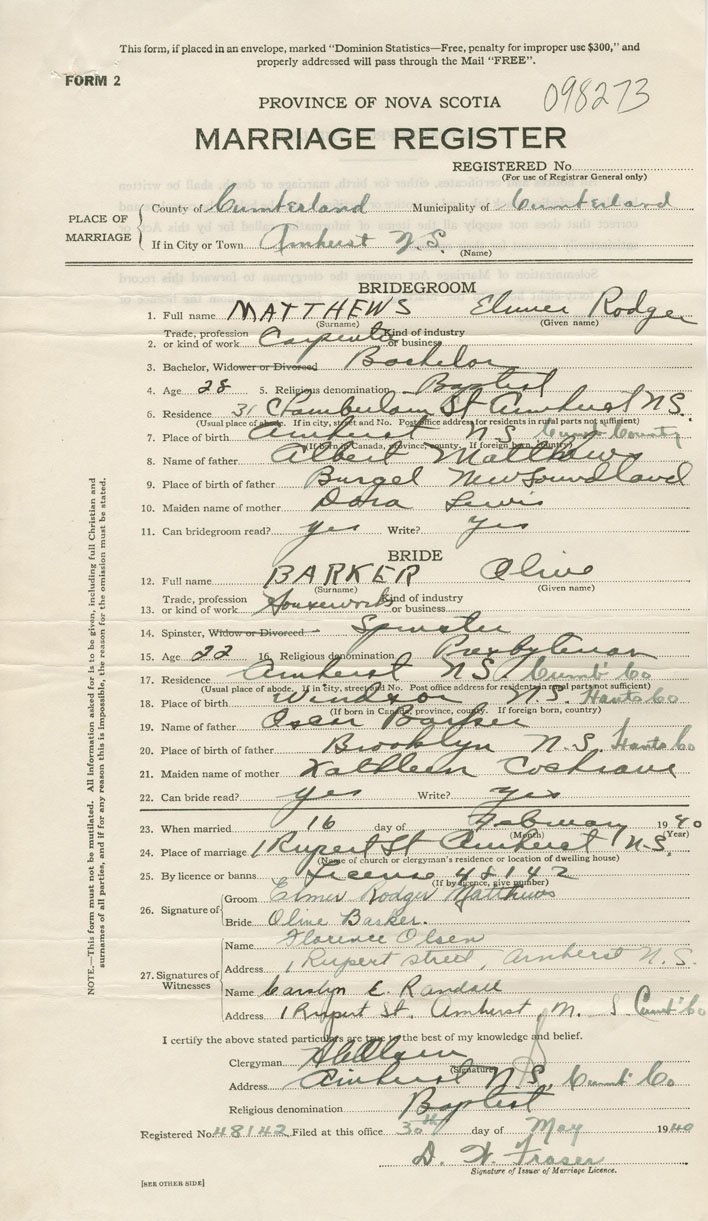 This form, if placed in an envelope, marked "Dominion Statistics—Free, penalty for improper use $300," and
properly addressed will pass through the Mail "FREE".
FORM 2
098273
PROVINCE OF NOVA SCOTIA
MARRIAGE REGISTER
REGISTERED No.
(For use of Registrar General only)
PLACE OF MARRIAGE
County of Cumberland Municipality of Cumberland
If in City or Town Amherst N.S.
(Name)
BRIDEGROOM
1. Full name MATTHEWS Elmer Rodger
(Surname) (Given name)
2. Trade, profession or kind of work Carpenter Kind of industry or business
3. Bachelor, Widower or Divorced Bachelor
4. Age 28 5. Religious denomination Baptist
6. Residence 31 Chamberlain St Amherst N.S.
(Usual place of abode. If in city, street and No. Post office address for residents in rural parts not sufficient)
7. Place of birth Amherst N.S. Cumb County
(If born in Canada, province, county. If foreign born, country)
8. Name of father Albert Matthews
9. Place of birth of father Burgeo Newfoundland
10. Maiden name of mother Dora Lewis
11. Can bridegroom read? yes Write? yes
BRIDE
12. Full name BARKER Olive
(Surname) (Given name)
13. Trade, profession or kind of work Housework Kind of industry or business
14. Spinster, Widow or Divorced Spinster
15. Age 22 16. Religious denomination Presbyterian
17. Residence Amherst N.S. Cumb' Co
(Usual place of abode. If in city, street and No. Post office address for residents in rural parts not sufficient)
18. Place of birth Windsor N.S. Hants Co
(If born in Canada, province, county. If foreign born, country)
19. Name of father Oscar Barker
20. Place of birth of father Brooklyn N.S. Hants Co
21. Maiden name of mother Kathleen Cochrane
22. Can bride read? yes Write? yes
23. When married 16 day of February 1940
(Month) (Year)
24. Place of marriage 1 Rupert St Amherst N.S.
(Name of church or clergyman's residence or location of dwelling house)
25. By licence or banns License 48142
(If by licence, give number)
26. Signature of
Groom Elmer Rodger Matthews
Bride Olive Barker.
27. Signatures of Witnesses
Name Florence Olsen
Address 1 Rupert street, Amherst N.S.
Name Carolyn E. Randall
Address 1 Rupert St. Amherst, N. S Cumb' Co
I certify the above stated particulars are true to the best of my knowledge and belief.
Clergyman
(Signature)
Address Amherst N.S. Cumb' Co
Religious denomination Baptist
Registered No. 48142 Filed at this office 30th day of May 1940
D. W. Fraser
Signature of Issuer of Marriage Licence.
[SEE OTHER SIDE]
NOTE.—This form must not be mutilated. All information asked for is to be given, including full Christian and
surnames of all parties, and if for any reason this is impossible, the reason for the omission must be stated.